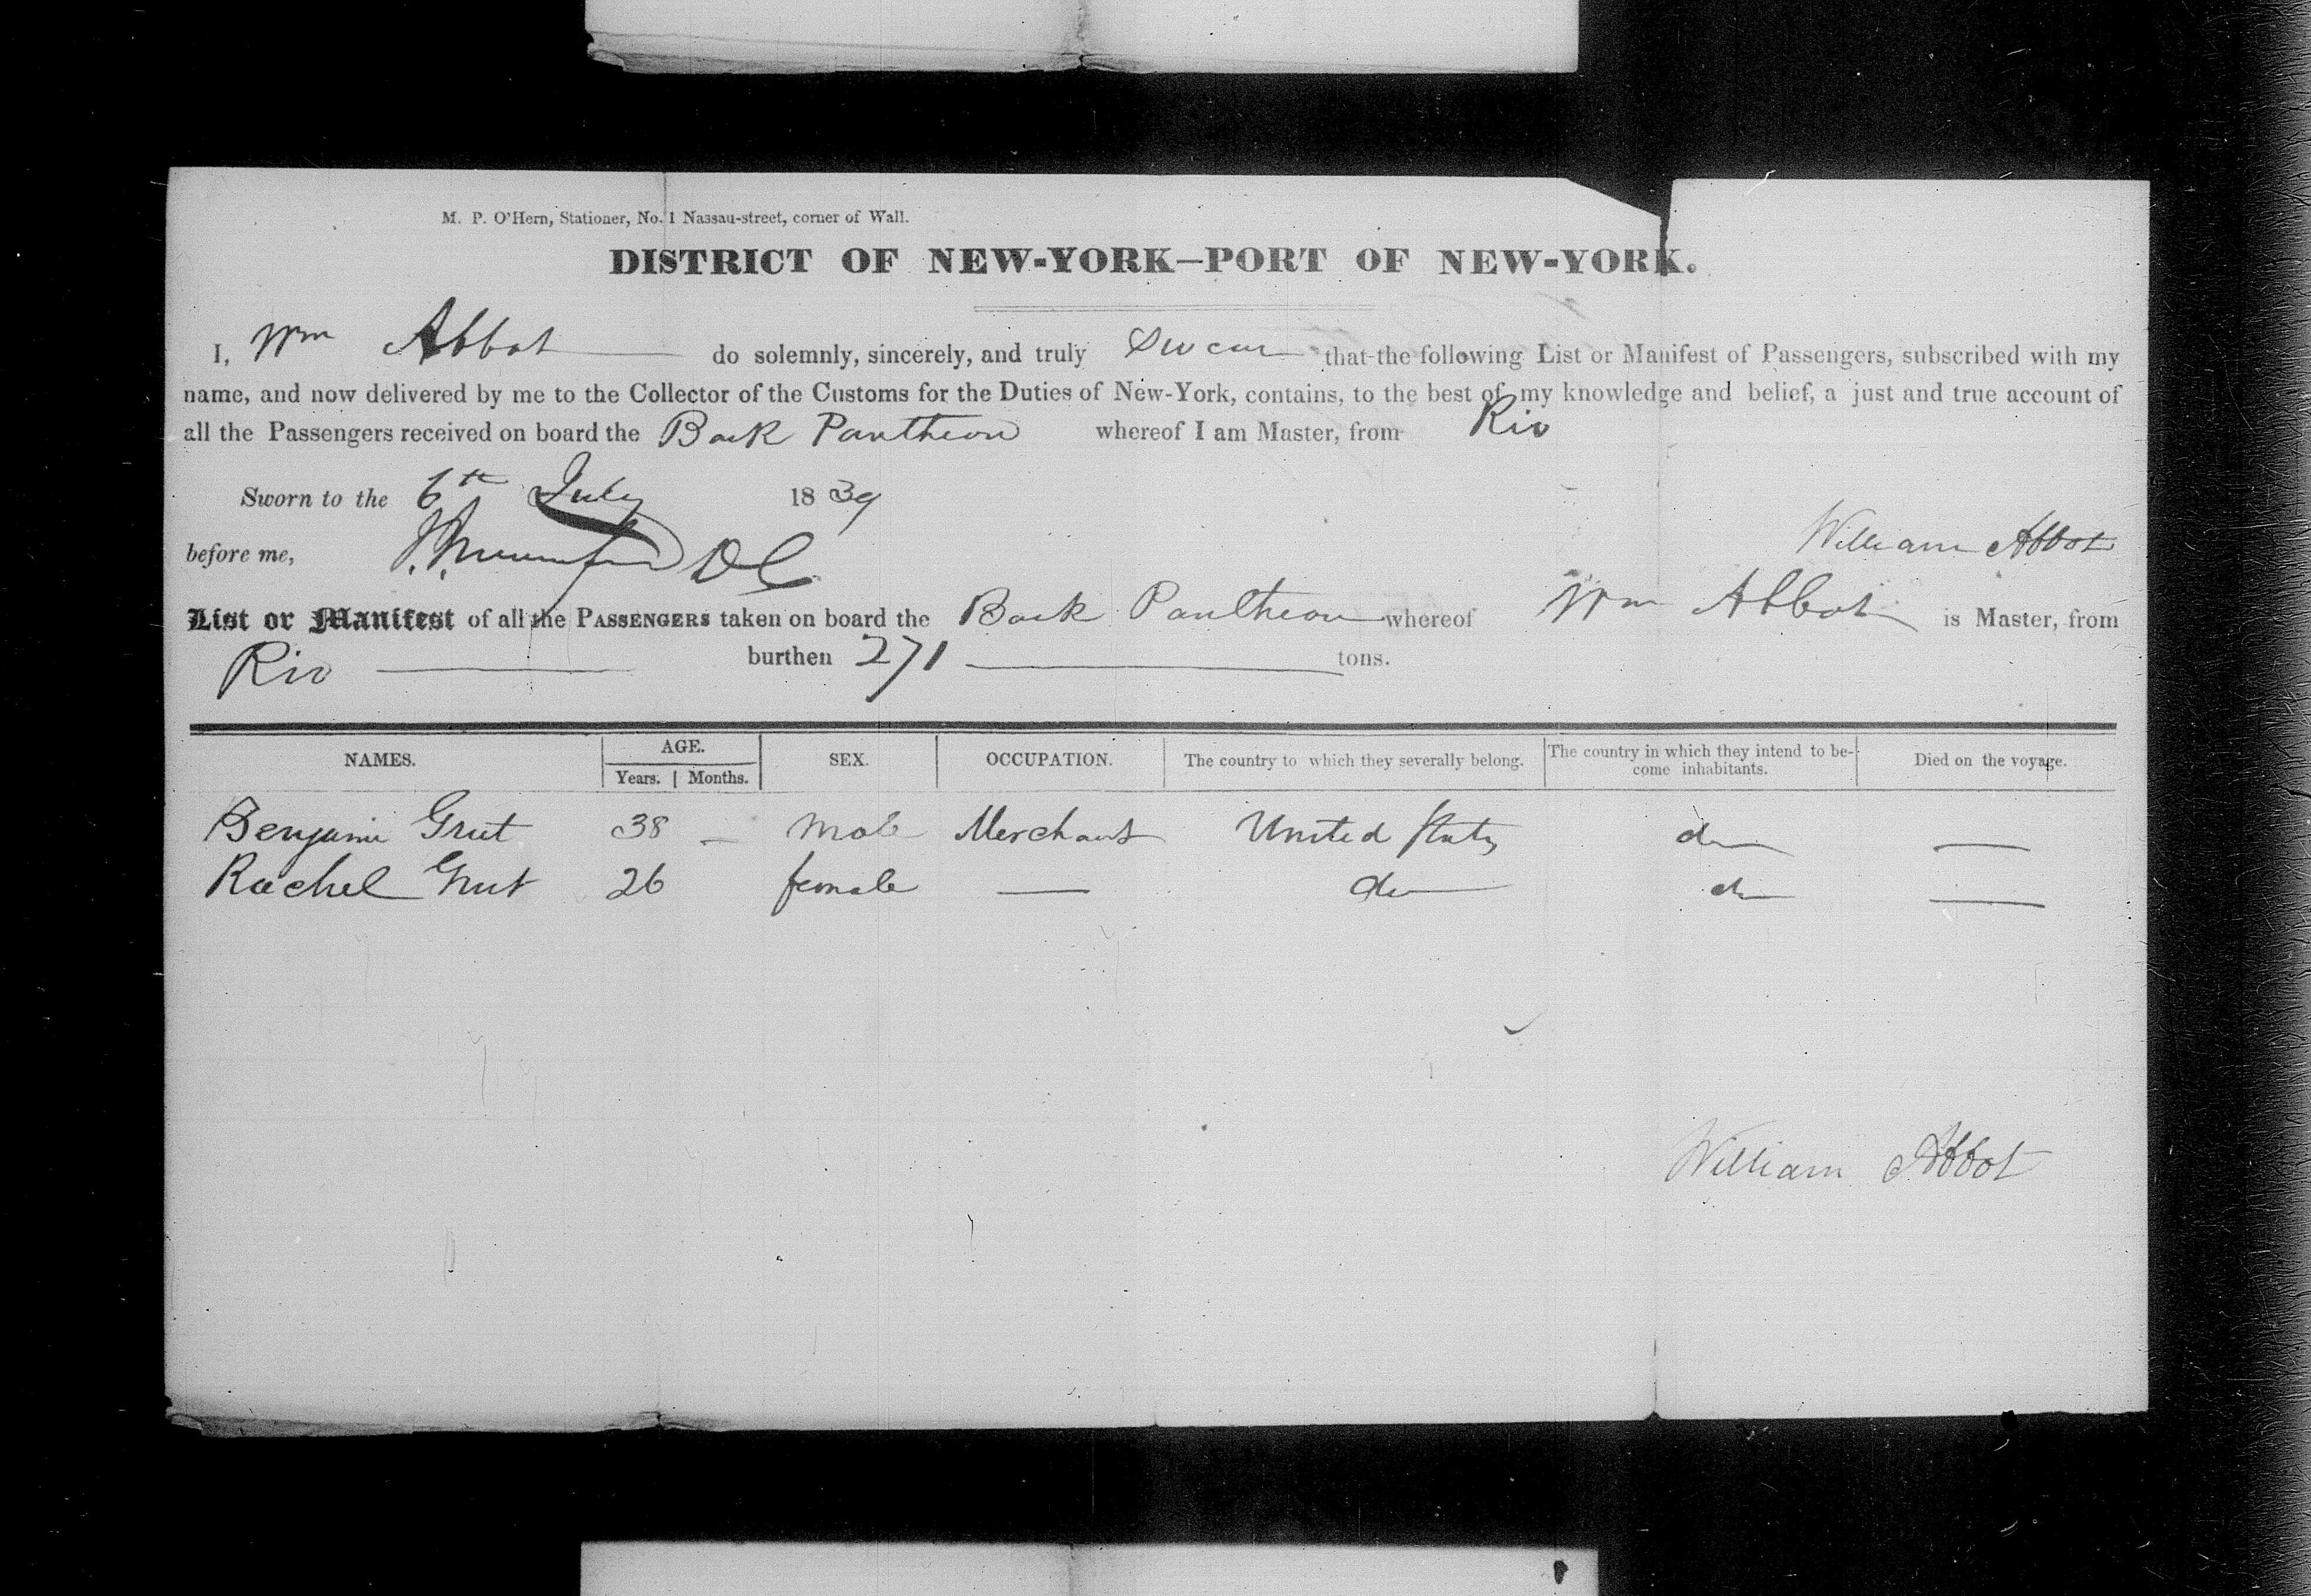 M. P. O'Hern, Stationer, No. 1 Nassau-street, corner of Wall.
DISTRICT OF NEW-YORK—PORT OF NEW-YORK.
I, Wm Abbot do solemnly, sincerely, and truly Swear that the following List or Manifest of Passengers, subscribed with my
name, and now delivered by me to the Collector of the Customs for the Duties of New-York, contains, to the best of my knowledge and belief, a just and true account of
all the Passengers received on board the Bark Pantheon whereof I am Master, from Rio
Sworn to the 6th July 1839
William Abbot
before me, DC
List or Manifest of all the PASSENGERS taken on board the Bark Pantheon whereof Wm Abbot is Master, from
Rio burthen 271 tons.
NAMES. AGE. Years. Months. SEX. OCCUPATION. The country to which they severally belong. The country in which they intend to become inhabitants. Died on the voyage.
Benjamin Grut 38 — Male Merchant United States do —
Rachel Grut 26 female — do do —
William Abbot